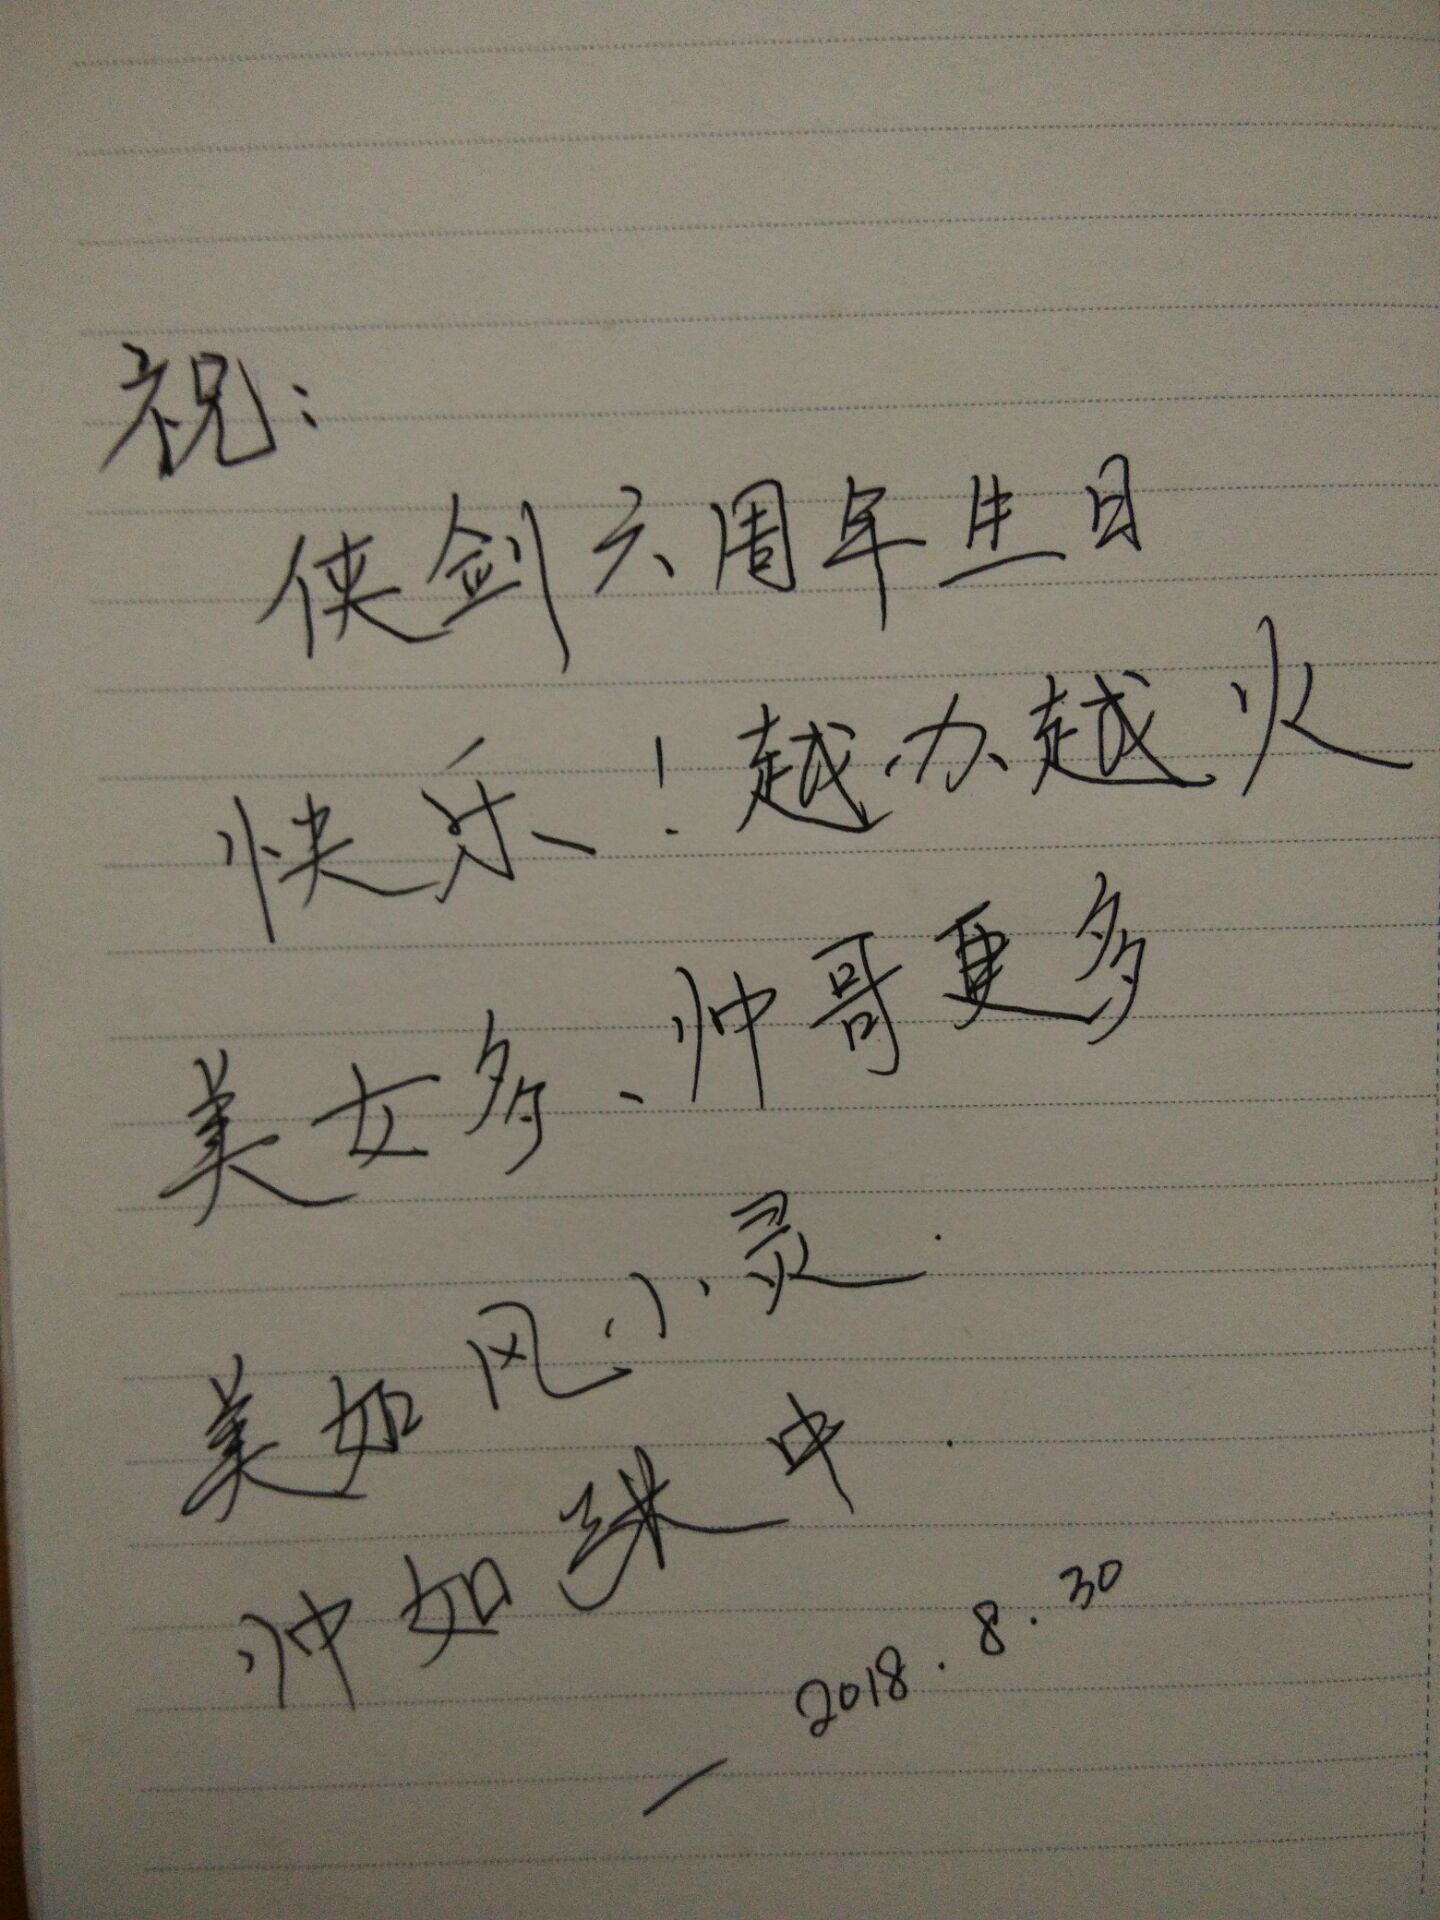 祝:
侠剑六周年生日
快乐!越办越火
美女多、帅哥更多
美如风小灵.
帅如 中.
2018.8.30